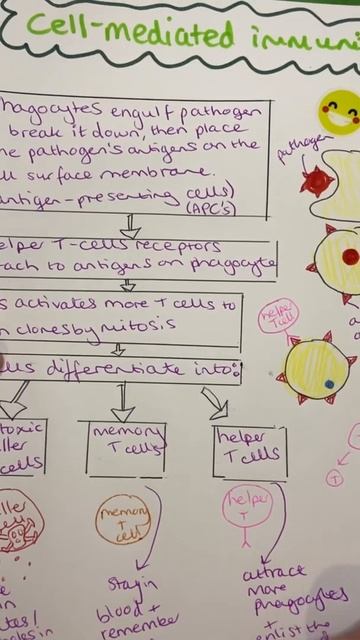 Cell-mediated immuni
hagocytes engulf pathogen
break it down, then place
he pathogen's antigens on the
ll surface membrane.
antigen-presenting cells)
(APC's)
pathogen
elper T-cells receptors
tach to antigens on phagocyte
s activates more T cells to
n clones by mitosis
helper
T cell
us differentiate into:
toxic
ller
cells
memory
T cells
helper
T cells
ller
cell
memory
T
cell
helper
T
T
Stay in
blood +
remember
attract
more
phagocytes
+
nlist the